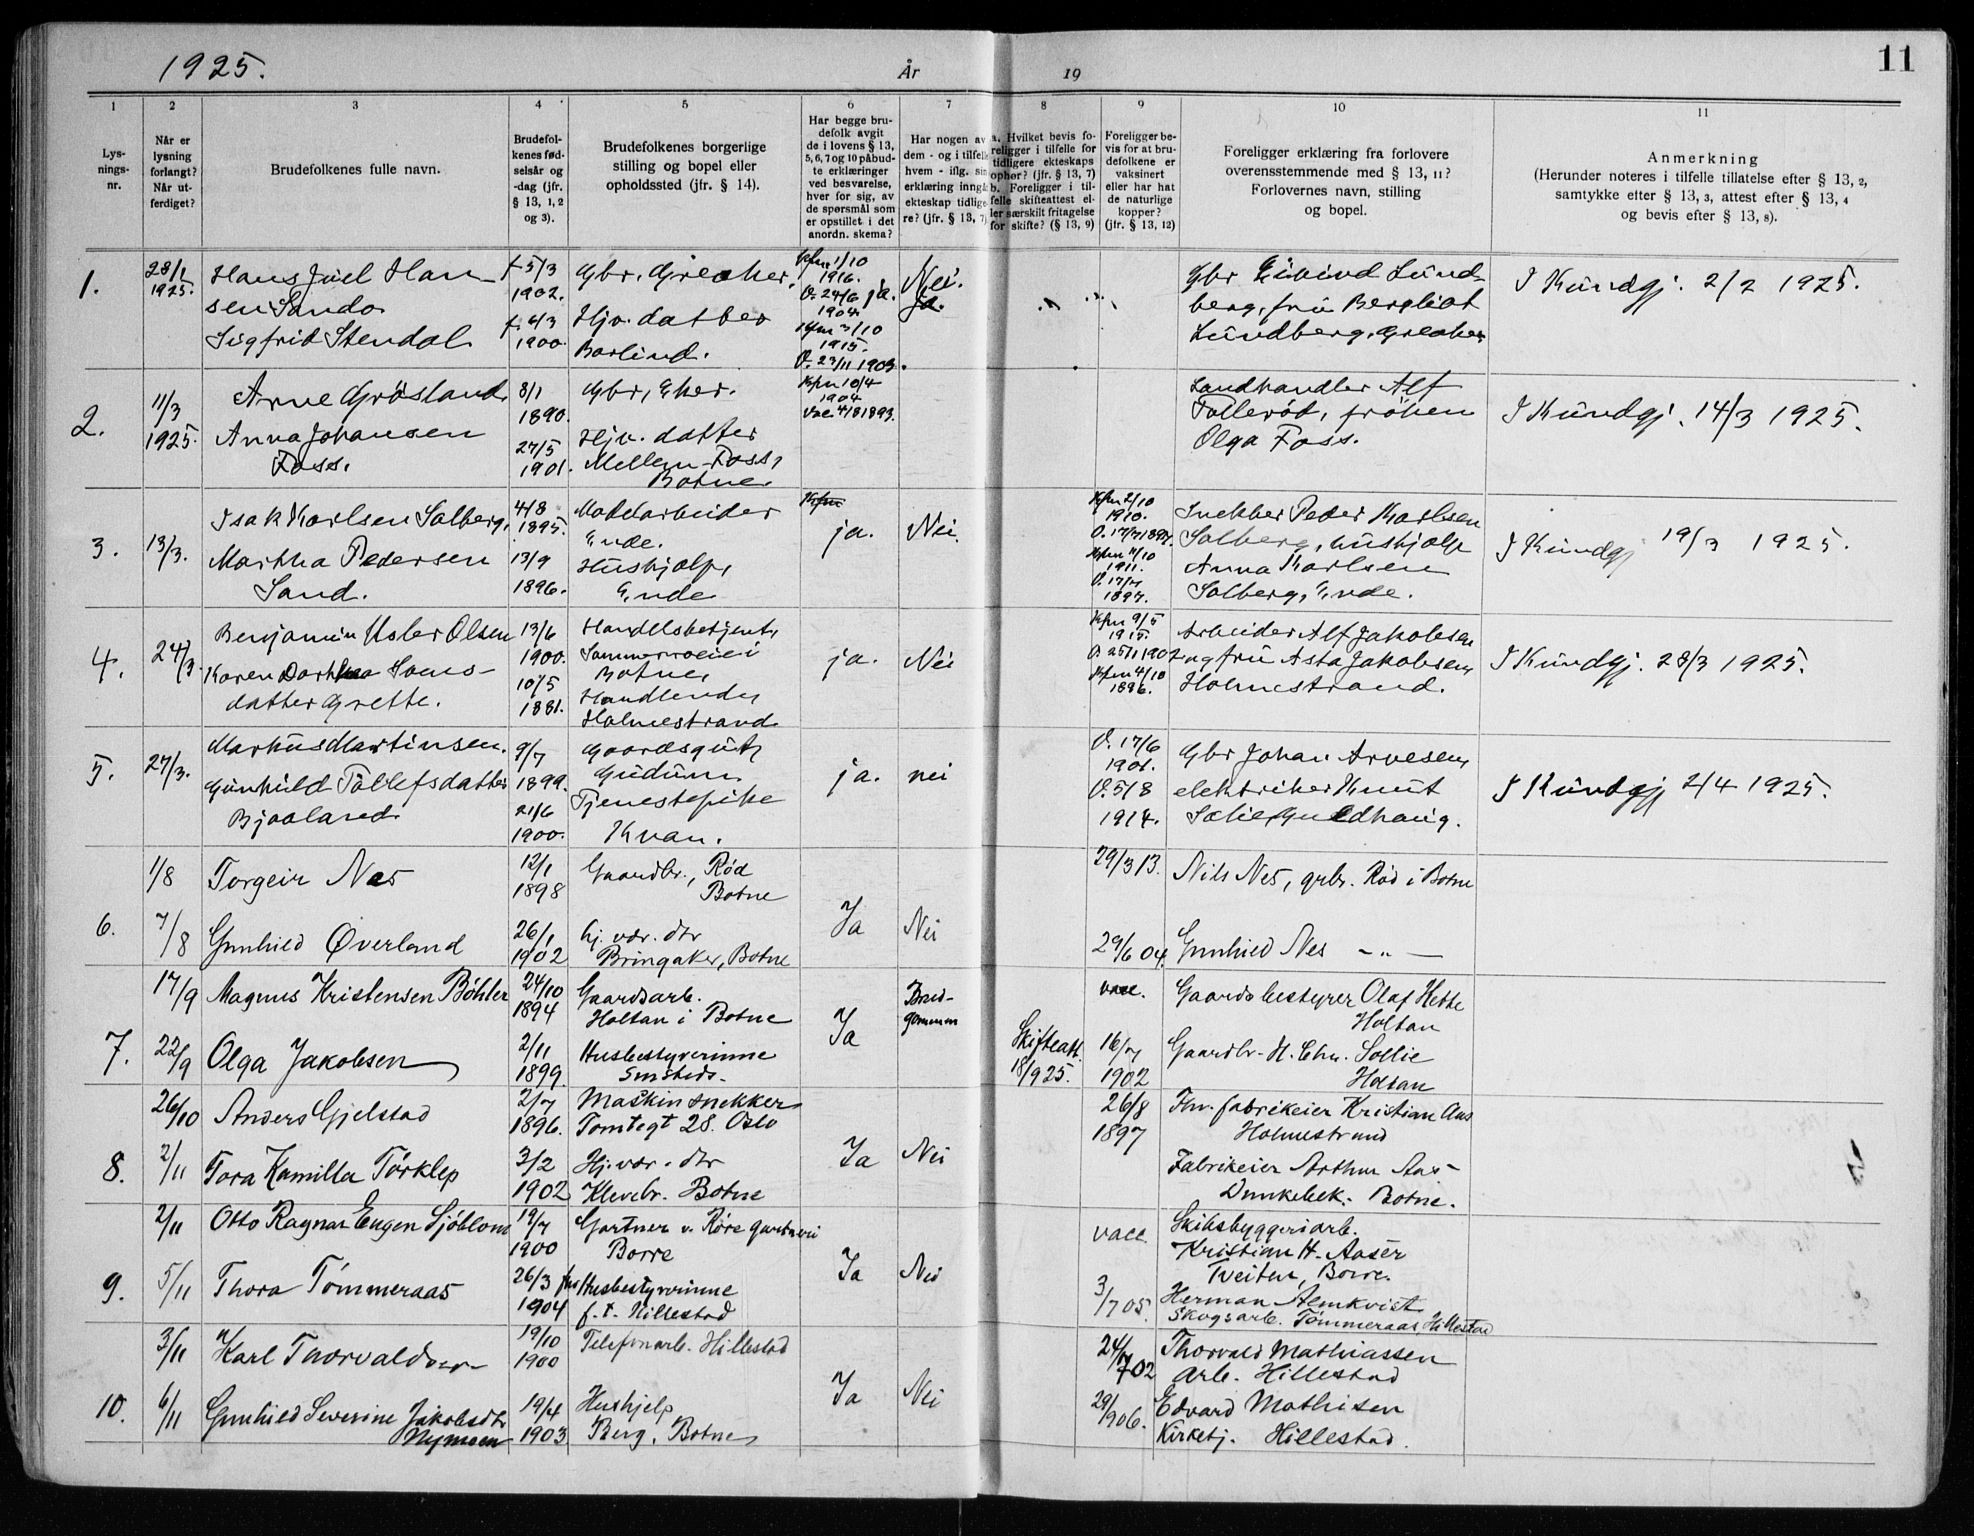 1925.
År
19
11
1
2
3
4
5
6
7
8
9
10
11
Lys-
nings-
nr.
Når er
lysning
forlangt?
Når ut-
ferdiget?
Brudefolkenes fulle navn.
Brudefol-
kenes fød-
selsår og
-dag (jfr.
§ 13, 1, 2
og 3).
Brudefolkenes borgerlige
stilling og bopel eller
opholdssted (jfr. § 14).
Har begge bru-
defolk avgit
de i lovens § 13,
5, 6, 7 og 10 påbud-
te erklæringer
ved besvarelse,
hver for sig, av
de spørsmål som
er opstillet i det
anordn. skema?
Har nogen av
dem - og i tilfelle
hvem - iflg. sin
erklæring inngåt
ekteskap tidlige-
re? (jfr. § 13, 7)
a. Hvilket bevis fo-
religger i tilfelle for
tidligere ekteskaps
ophør? (jfr. § 13, 7)
b. Foreligger i til-
felle skifteattest el-
ler særskilt fritagelse
for skifte? (§ 13, 9)
Foreligger be-
vis for at bru-
defolkene er
vaksinert
eller har hat
de naturlige
kopper?
(jfr. § 13, 12)
Foreligger erklæring fra forlovere
overensstemmende med § 13, 11?
Forlovernes navn, stilling
og bopel.
Anmerkning
(Herunder noteres i tilfelle tillatelse efter § 13, 2,
samtykke etter § 13, 3, attest efter § 13, 4
og bevis efter § 13, 8).
1.
28/1
1925.
Hans Juel Han
sen Sando
Sigfrid Stendal
f 5/3
1902.
f. 6/3
1900.
Gbr. Greaker,
Hjv. datter
Borlind.
Kfm 1/10
1916.
V. 24/6 ja.
1904.
Kfm 3/10
1915.
V. 23/11 1903.
Nei.
ja.
Gbr Eivind Lund-
berg, fru Bergliot
Lundberg, Greaker
I Kundgj. 2/2 1925.
2.
11/3
1925.
Arne Grösland,
Anna Johansen
Foss.
8/1
1890.
27/5
1901.
Gbr, Eker.
Hjv. datter
Mellem-Foss,
Botne.
Kfm 10/4
1904
Vac. 4/8 1893.
Landhandler Alf
Tolleröd, fröken
Olga Foss.
I Kundgj. 14/3 1925.
3.
13/3.
Isak Karlsen Solberg,
Martha Pedersen
Sand.
4/8
1895.
13/9
1896.
Møbelarbeider
Ende.
Hushjælp,
Ende
Kfm
ja.
Nei.
Kfm 2/10
1910.
V. 17/7 1897.
Kfm 11/10
1911.
V. 17/7
1897.
Snekker Peder Karlsen
Solberg, hushjælp
Anna Karlsen
Solberg, Ende.
I Kundgj 19/3 1925.
4.
24/3.
Benjamin Usler Olsen
Karen Dorthea Hans-
datter Grette.
13/6
1900.
10/5
1881.
Handelsbetjent,
Sommerroeie i
Botne,
Handlende,
Holmestrand
ja.
Nei
Kfm 9/5
1915.
V. 25/1 1902
Kfm 4/10
1896.
Arbeider Alf Jakobsen
og fru Asta Jakobsen,
Holmestrand.
I Kundgj. 28/3 1925.
5.
27/3.
Markus Martinsen.
Gunhild Tollefsdatter
Bjaaland
9/7
1899.
21/6
1900.
Gaardsgut,
Gudum
Tjenestepike
Kvan.
ja.
nei
V. 17/6
1901.
V. 5/8
1914.
Gbr Johan Arvesen,
elektriker Knut
Solie Guldhaug.
I Kundgj 2/4 1925.
6.
1/8
7/8
Torgeir Nes
Gunhild Øverland
12/1
1898
26/1
1902
Gaardbr., Rød
Botne
hj. vær. dtr
Bringaker, Botne
Ja
Nei
29/3 13.
29/6 04.
Nils Nes, grbr. Rød i Botne
Gunhild Nes — „ —
7.
17/9
22/9
Magnus Kristensen Böhler
Olga Jakobsen
24/10
1894
2/11
1899.
Gaardsarb.
Holtan i Botne
Husbestyrerinne
Smsteds.
Ja
Brud-
gommen
Skifteatt.
18/9 25.
vacc.
16/7
1902
Gaardsbestyrer Olaf Hette
Holtan
Gaardbr. H. Chr. Sollie
Holtan
8.
26/10
2/11
Anders Gjelstad
Tora Kamilla Törklep
2/7
1896.
3/2
1902
Maskinsnekker
Tomtegt 28. Oslo
Hj. vær. dtr
Klevebr. Botne
Ja
Nei
26/8
1897
Fhv. fabrikeier Kristian Aas
Holmestrand
Fabrikeier Arthur Aas
Dunkebek. Botne.
9.
2/11
5/11
Otto Ragnar Eugen Sjöblom
Thora Tömmeraas
19/7
1900
26/3
1904
Gartner v. Röre gartneri
Borre
Husbestyrerinne
f. t. Hillestad
Ja
Nei
vacc.
3/7 05.
Skibsbyggeriarb.
Kristian H. Aasér
Tveiten, Borre.
Herman Almkvist
Skogsarb. Tömmeraas Hillestad
10.
3/11
6/11
Karl Thorvaldsen
Gunhild Severine Jakobsdtr
Nymoen
19/10
1900
19/4
1903
Telefonarb. Hillestad
Hushjelp
Berg, Botne
Ja
Nei
24/7 02
29/9 06.
Thorvald Mathiassen
Arb. Hillestad
Edvard Mathisen
Kirketj. Hillestad.